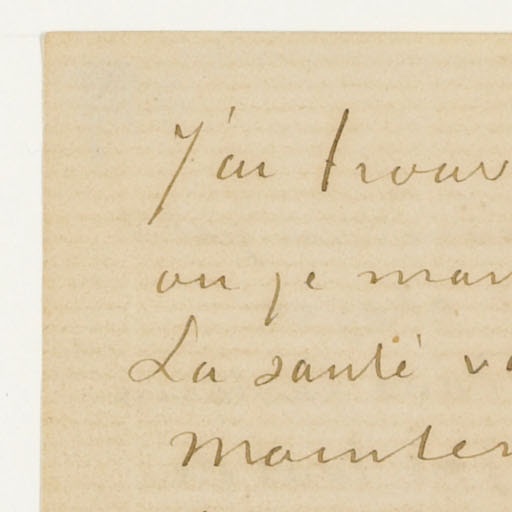 J'ai trouv
ou je man
La santé va
mainten